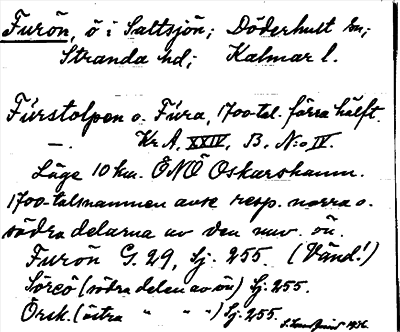 Furön, ö i Saltsjön; Döderhult sn;
Stranda hd; Kalmar l.
Fúrstolpen o. Fúra, 1700-tal. förra hälft.
—. Kr. A. XXIV, B. N:o IV.
Läge 10 km. ÖNÖ Oskarshamn.
1700-talsnamnen avse resp. norra o.
södra delarna av den nuv. ön.
Furön G. 29, Sj. 255. (Vänd!)
Sörcö (södra delen av ön) Sj. 255.
Örsk. (östra " " ") Sj. 255.
1936.